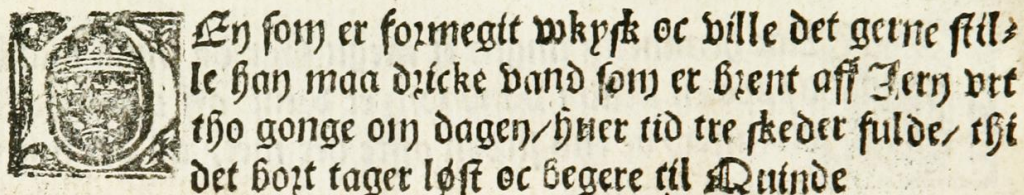 DEn som er formegit wkysk oc ville det gerne stil⸗
le han maa dricke vand som er brent aff Jern vrt
tho gonge om dagen/ huer tid tre skeder fulde/ thi
det bort tager løst oc begere til Quinde